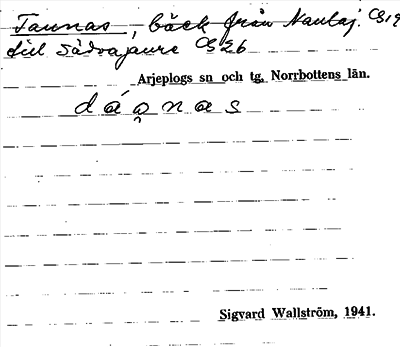 Taunas, bäck från Nautaj. CS19
till Sädvajaure CS26
Arjeplogs sn och tg, Norrbottens län.
dáo̭nas
Sigvard Wallström, 1941.